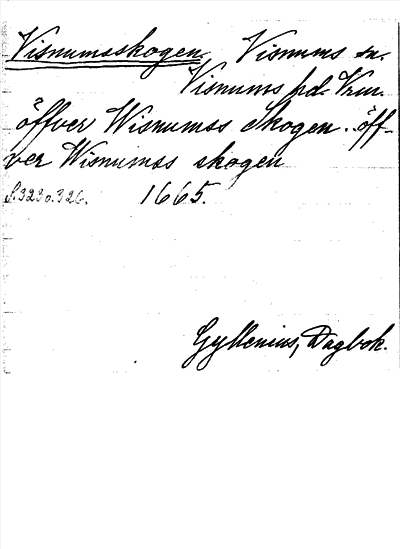 Visnumsskogen, Visnums sn.
Visnums hd. Vrml.
öffver Wisnumss Skogen. öff-
ver Wisnumss skogen
S. 323 o. 326. 1665.
Gyllenius, Dagbok.